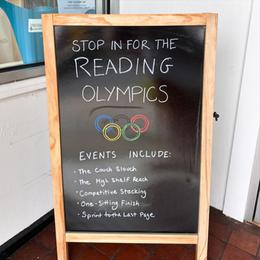 STOP IN FOR THE
READING
OLYMPICS
EVENTS INCLUDE:
• The Couch Slouch
• The High Shelf Reach
• Competitive Stacking
• One-Sitting Finish
• Sprint to the Last Page